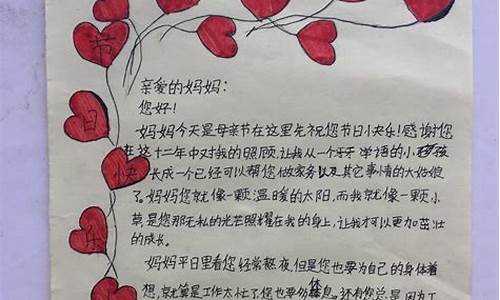 节
日
快
乐
亲爱的妈妈:
您好!
妈妈今天是母亲节在这里先祝您节日快乐!感谢您
在这十二年中对我的照顾,让我从一个牙牙学语的小孩
长成一个已经可以帮您做家务以及其它事情的大姑娘
了。妈妈您就像一颗温暖的太阳,而我就像一颗小
草,是您那无私的光芒照耀在我的身上,让我才可以更加茁壮
的成长。
妈妈平日里看您经常熬夜,但是您也要为自己的身体着
想,就算是工作太忙了您也要多休息。还有您总是因为工